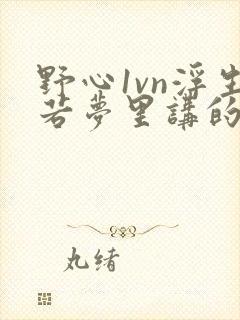 野心1vn浮生
若夢里講的
丸绪